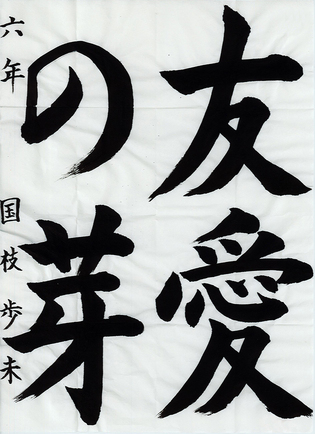 友愛
の芽
六年 国枝歩未